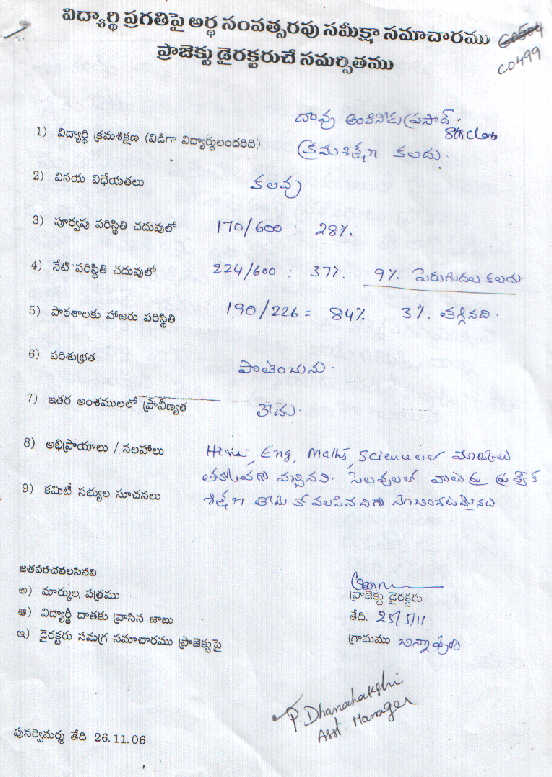 విద్యార్థి ప్రగతిపై అర్ధ సంవత్సరపు సమీక్షా సమాచారము
ప్రాజెక్టు డైరక్టరుచే సమర్పితము
C0499
8th Class
1) విద్యార్థి క్రమశిక్షణ (విడిగా విద్యార్థులందరిది) క్రమశిక్షణ కలదు.
2) వినయ విధేయతలు కలవు
3) పూర్వపు పరిస్థితి చదువులో 170/600 : 28%.
4) నేటి పరిస్థితి చదువులో 224/600 : 37%. 9% పెరుగుదల కలదు
5) పాఠశాలకు హాజరు పరిస్థితి 190/226 = 84% 3%. తగ్గినది.
6) పరిశుభ్రత పాటించును.
7) ఇతర అంశములలో ప్రావీణ్యత లేదు.
8) అభిప్రాయాలు / సలహాలు Hindi, Eng, Maths, Science లలో మార్కులు
తక్కువగా వచ్చినవి. సెలవులలో
9) కమిటీ సభ్యుల సూచనలు
జతపరచవలసినవి
అ) మార్కుల పత్రము
ఆ) విద్యార్థి దాతకు వ్రాసిన జాబు
ఇ) డైరక్టరు సమగ్ర సమాచారము ప్రాజెక్టుపై
ప్రాజెక్టు డైరక్టరు
తేది. 25/5/11
గ్రాముము
P Dhanalakshi
Asst Manager
పునర్విమర్శ తేది 26.11.06